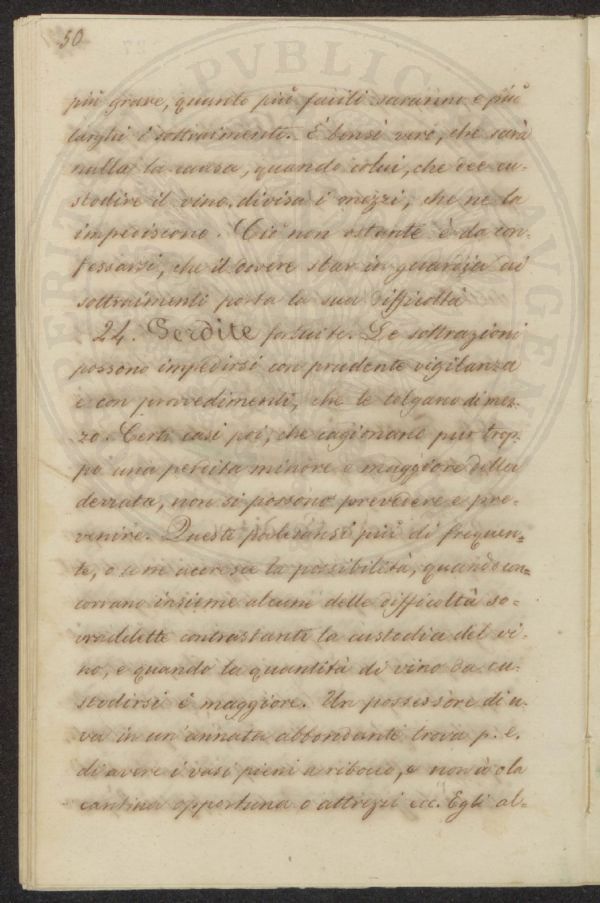 50
più grave, quanto più facili saranno e più
larghi i sottraimenti. È bensì vero, che sarà
nulla la causa, quando colui, che dee cu-
stodire il vino, divisa i mezzi, che ne la
impediscono. Ciò non ostante è da con-
fessarsi, che il dovere star in guardia ai
sottraimenti porta la sua difficoltà
24. Perdite fortuite. Le sottrazioni
possono impedirsi con prudente vigilanza
e con provvedimenti, che le tolgano di mez-
zo. Certi casi poi, che cagionano pur trop-
po una perdita minore o maggiore della
derrata, non si possono prevedere e pre-
venire. Questi più di frequen-
te, o se ne accresce la possibilità, quando con-
corrano insieme alcune delle difficoltà so-
vradette contrastanti la custodia del vi-
no, e quando la quantità di vino da cu-
stodirsi è maggiore. Un possessore di u-
va in un'annata abbondante trova p. e.
di avere i vasi pieni a ribocco, e non à la
cantina opportuna o attrezzi ecc. Egli al-
PVBLIC